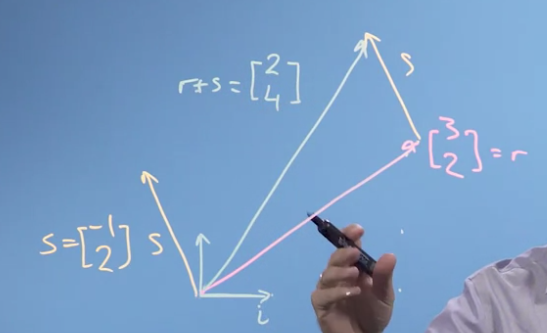 r+s = [2 4]
s
[3 2] = r
s = [-1 2] s
i